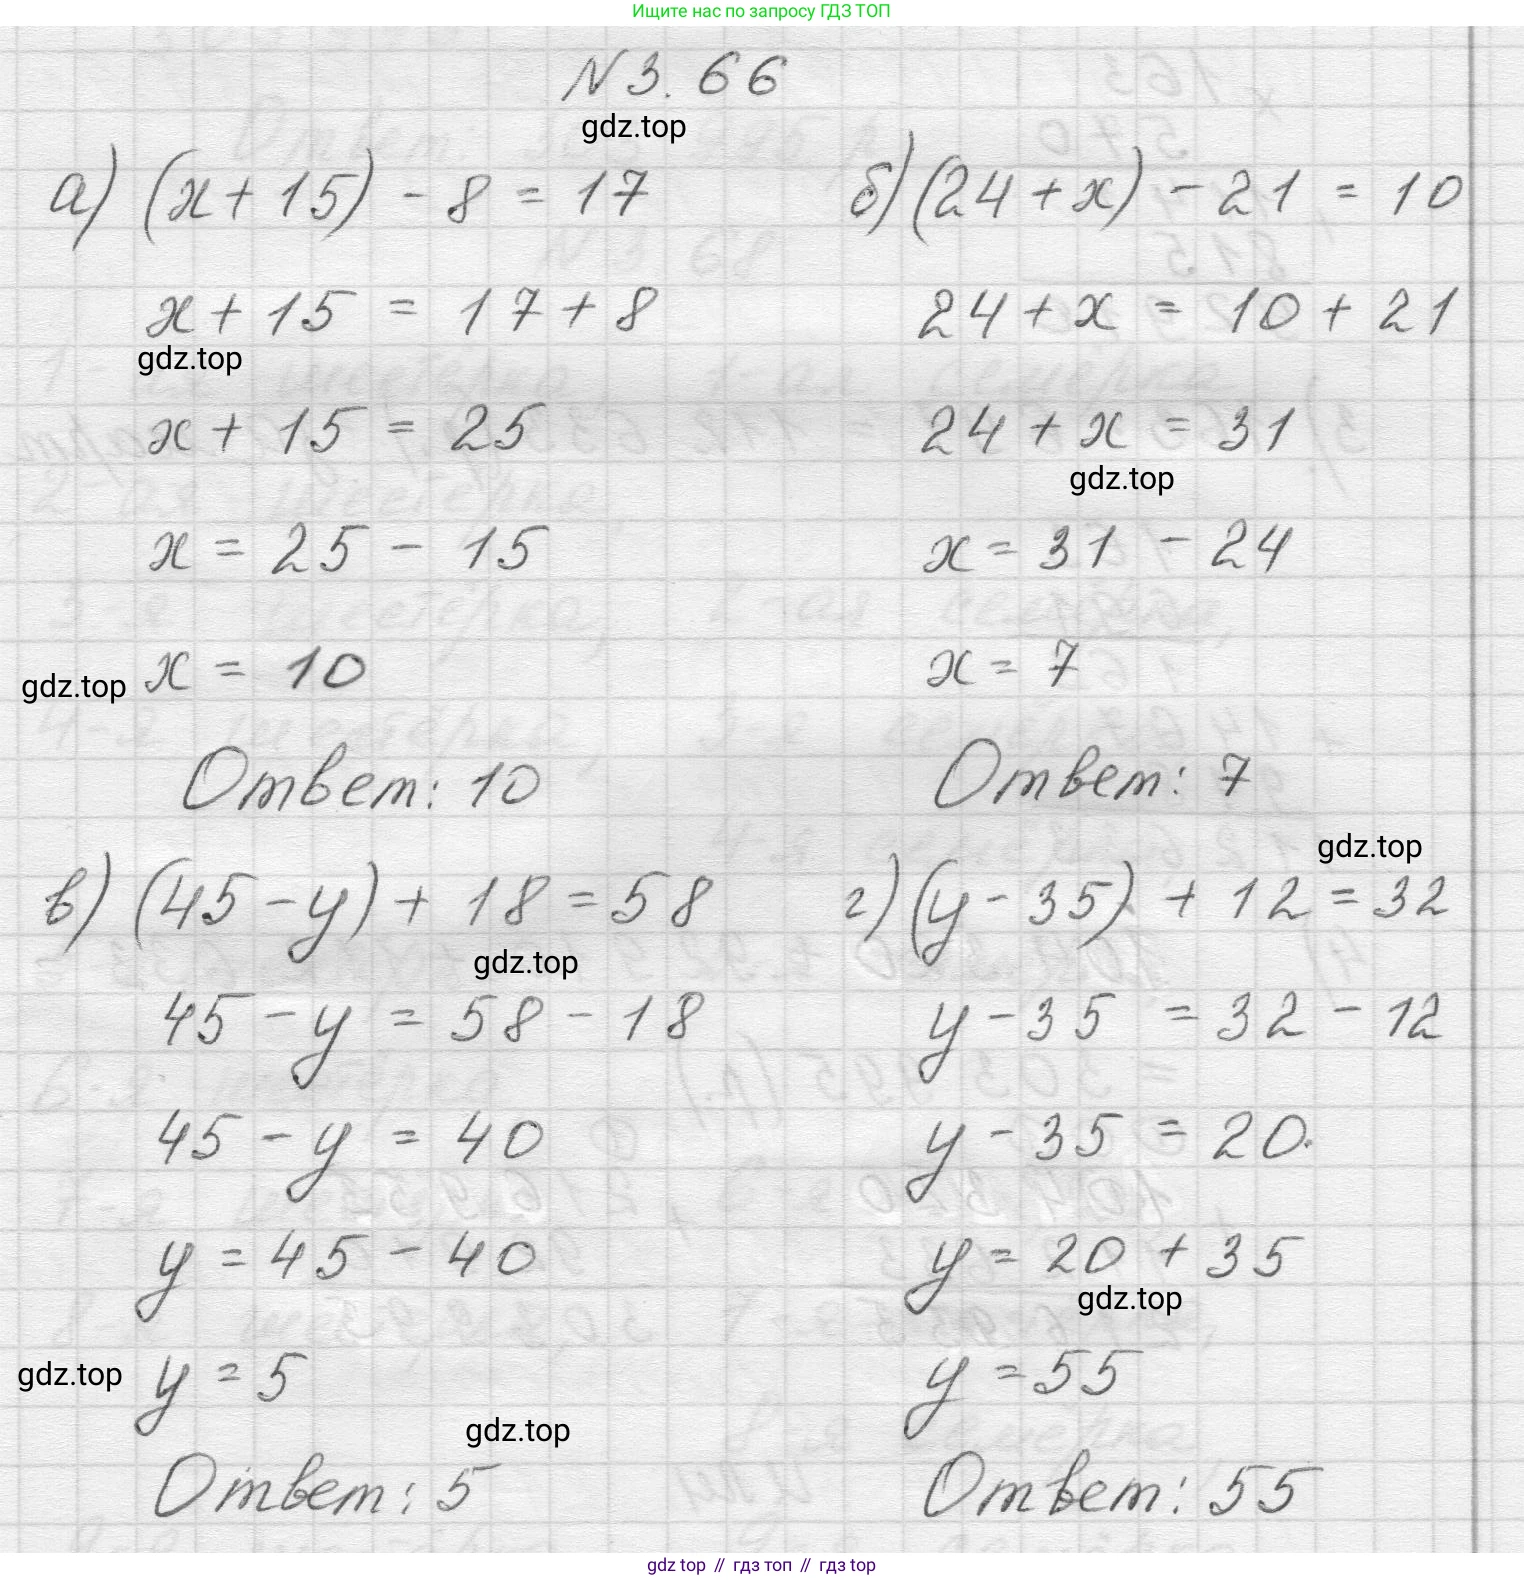 Ищите нас по запросу ГДЗ ТОП
N 3. 66
gdz.top
а) (x + 15) - 8 = 17
x + 15 = 17 + 8
gdz.top
x + 15 = 25
x = 25 - 15
gdz.top x = 10
Ответ: 10
б) (24 + x) - 21 = 10
24 + x = 10 + 21
24 + x = 31
gdz.top
x = 31 - 24
x = 7
Ответ: 7
gdz.top
в) (45 - y) + 18 = 58
gdz.top
45 - y = 58 - 18
45 - y = 40
y = 45 - 40
gdz.top y = 5
gdz.top
Ответ: 5
г) (y - 35) + 12 = 32
y - 35 = 32 - 12
y - 35 = 20.
y = 20 + 35
gdz.top
y = 55
Ответ: 55
gdz top // гдз топ // гдз top